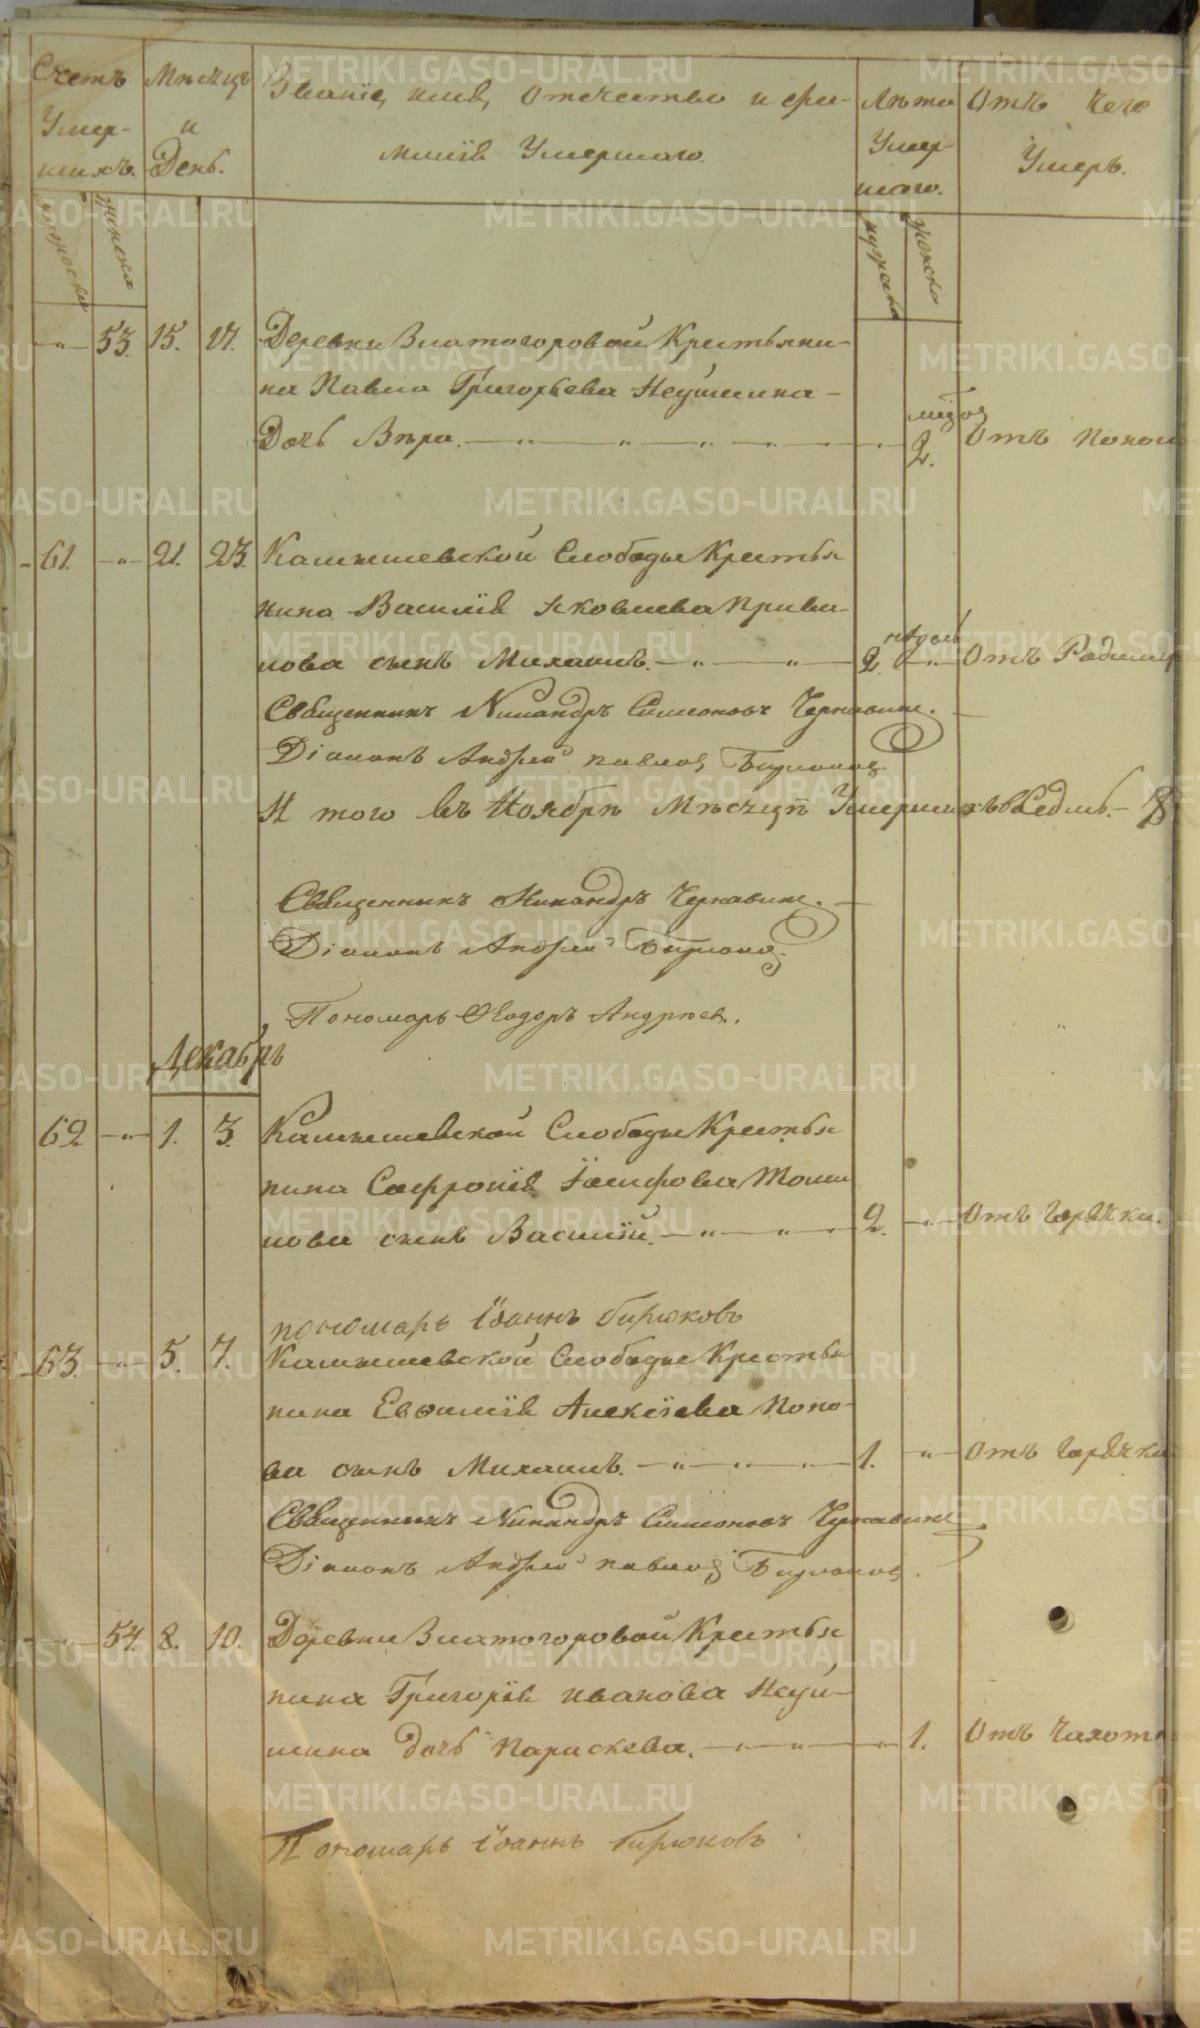 Счетъ Умер-шихъ.
Мѣсяцъ и День.
Званіе, имя, Отечество и фа-
миліѧ Умершаго.
Лѣта Умер-шаго.
Отъ Чего Умеръ.
мужеска
женска
мужеска
женска
-"- 53. 15. 17. Деревни Златогоровой Крестьяни-
на Павла Григорьева Неуймина-
Дочь Вѣра. 2. Отъ
61. -"- 21. 23. Камышевской Слободы Крестья
нина Василіѧ Яковлева
лова сынъ Михаилъ. 2. недѣль -"- Отъ Родимц
Священникъ Никандръ Симеоновъ Чернавинъ.
Діаконъ Андрей Павловъ Бирюковъ
И того въ Ноябрѣ Мѣсяцѣ Умершихъ
Священникъ Никандръ Чернавинъ.
Діаконъ Андрей Бирюковъ.
Пономарь Ѳеодоръ Андреев.
Декабрь
62 -"- 1. 3. Камышевской Слободы Крестья
нина Софроніѧ Іосифова
нова сынъ Василій. 2. -"- Отъ Горячки.
пономарь Іоаннъ Бирюковъ
63. -"- 5. 7. Камышевской Слободы Крестья
нина Евѳиміѧ Алексіева Попо-
ва сынъ Михаилъ. 1. -"- Отъ Горячки
Священникъ Никандръ Симеоновъ Чернавинъ
Діаконъ Андрей Павловъ Бирюковъ.
-"- 54. 8. 10. Деревни Златогоровой Крестья
нина Григоріѧ Иванова Неуй-
мина дочь Параскева. -"- 1. Отъ Чахотк
Пономарь Іоаннъ Бирюковъ
METRIKI.GASO-URAL.RU